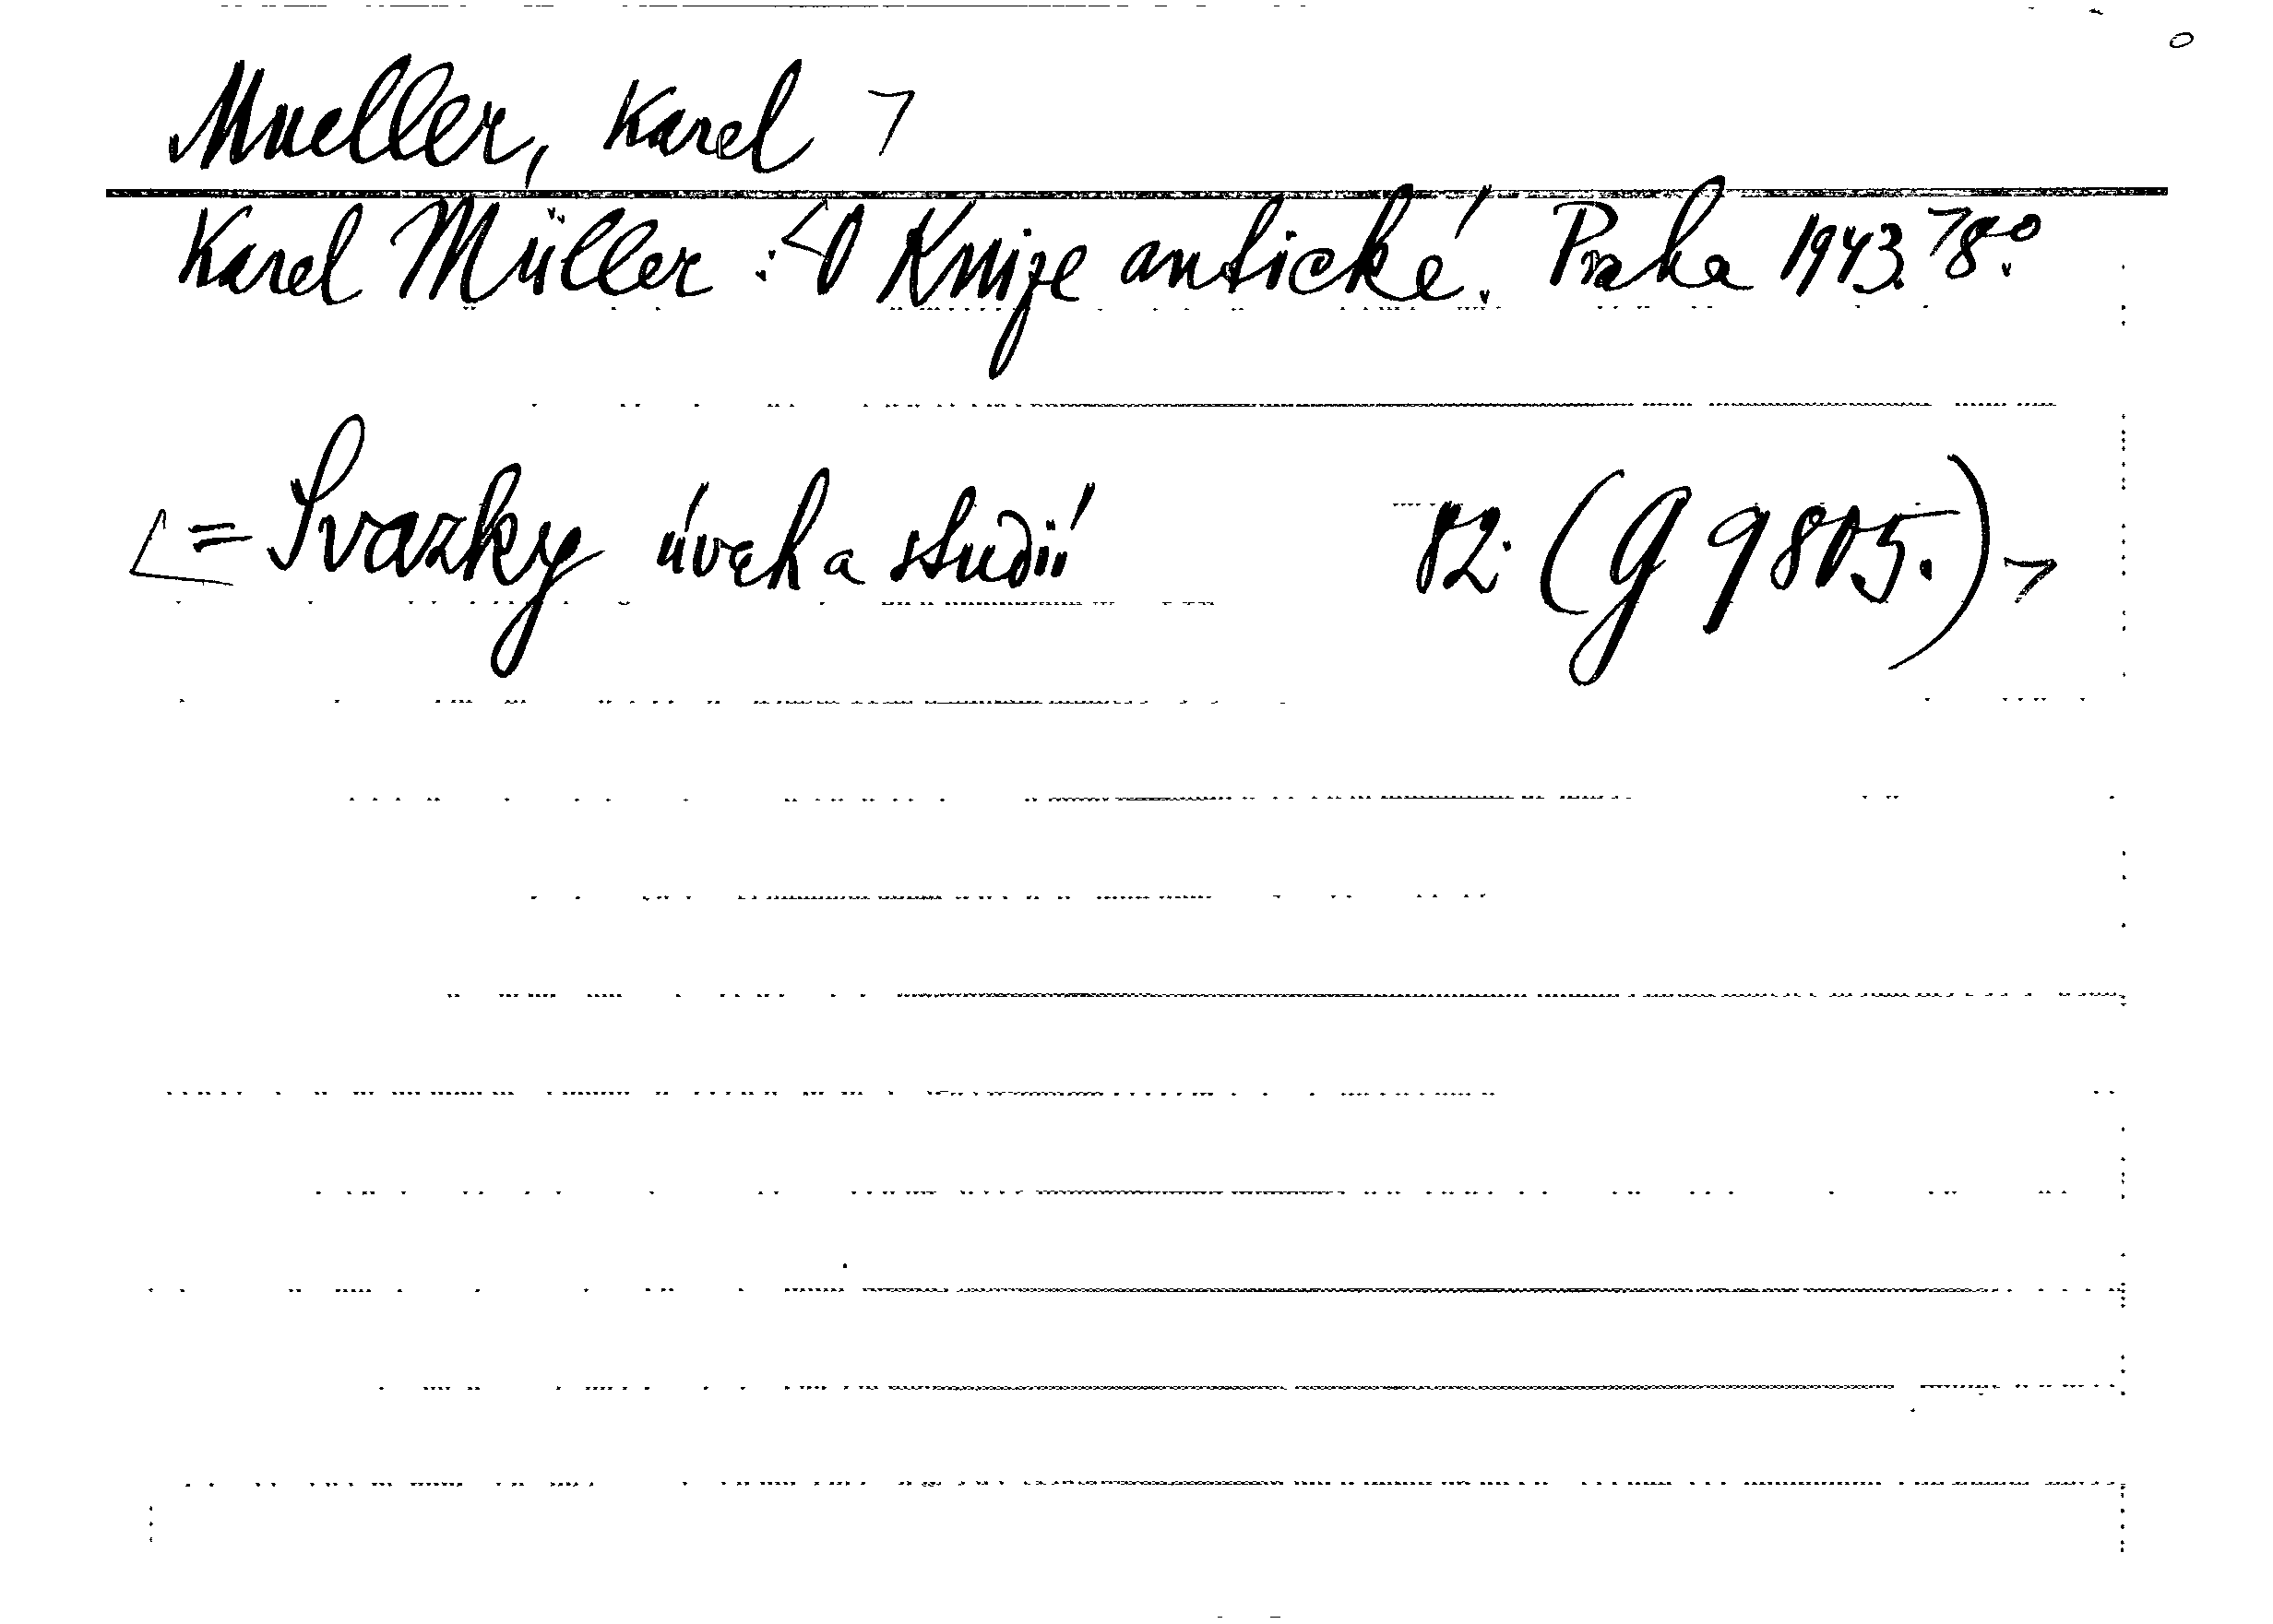 Mueller, Karel ㄱ
Karel Müller: <O Knize antické. Praha 1943. ㄱ8.º
[= Svazky úvah a studií 82. (G 9805.) ㄱ